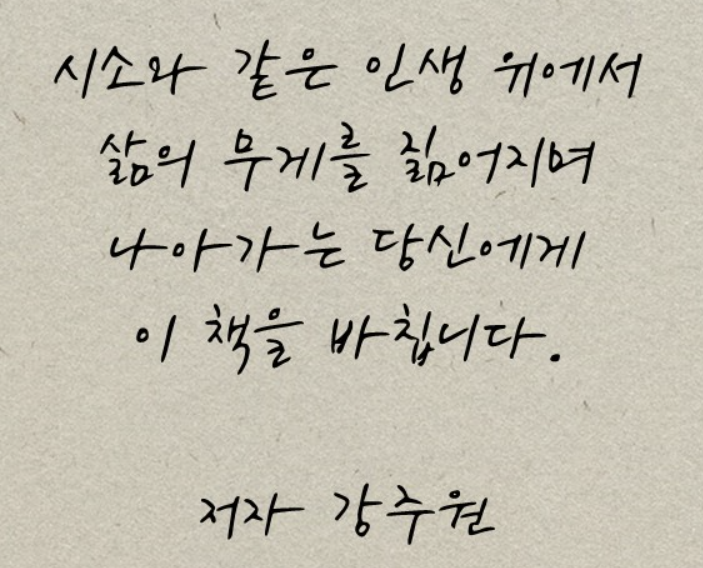 시소와 같은 인생 위에서
삶의 무게를 짊어지며
나아가는 당신에게
이 책을 바칩니다.
저자 강주원